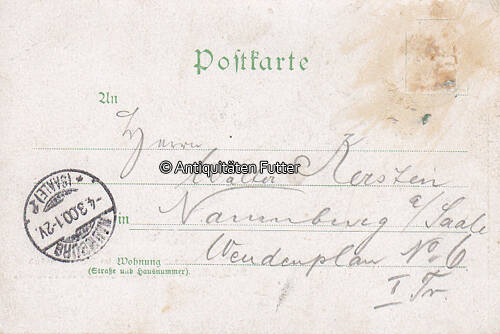 Postkarte
An
Herrn
Walter Kersten
© Antiquitäten Futter
in Naumburg a/Saale
Wohnung
(Straße und Hausnummer).
Wendenplan No 6
I Tr.
NAUMBURG
(SAALE) 2
-4.3.00.1-2V.